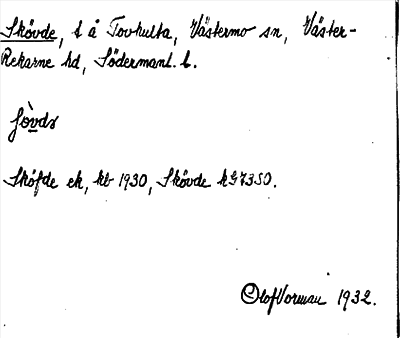 Skövde, t å Tovhulta, Västermo sn, Väster-
Rekarne hd, Södermanl. l.
Sköfde ek, kb 1930, Skövde kG7350.
Olof Vorman 1932.